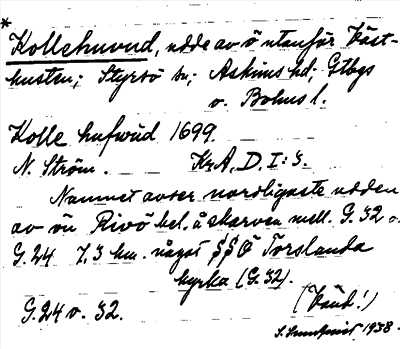 *
Kollehuvud, udde av ö utanför Väst-
kusten; Styrsö sn; Askims hd; Gtbgs
o. Bohus l.
Kolle hufwud 1699.
N. Ström. KrA, D. I: 3.
Namnet avser nordligaste udden
av ön Rivö bel. å skarven mell. G. 32 o.
G. 24 7,3 km. något SSÖ Torslanda
kyrka (G. 32).
G. 24 o. 32. (Vänd!)
1938.